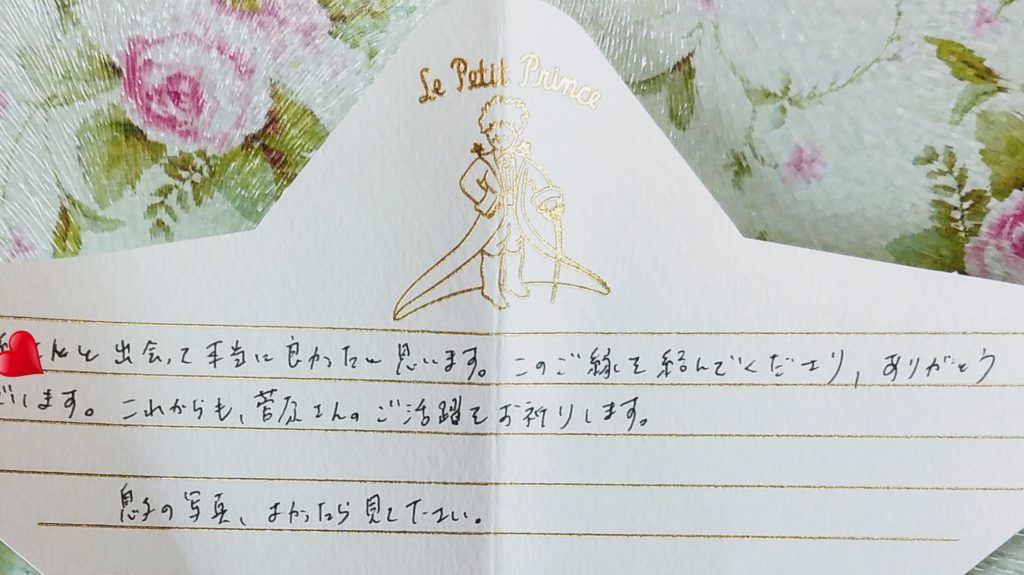 Le Petit Prince
さんと出会って本当に良かったと思います。このご縁を結んでくださり、ありがとう
ざいします。これからも、菅原さんのご活躍をお祈りします。
息子の写真、よかったら見て下さい。